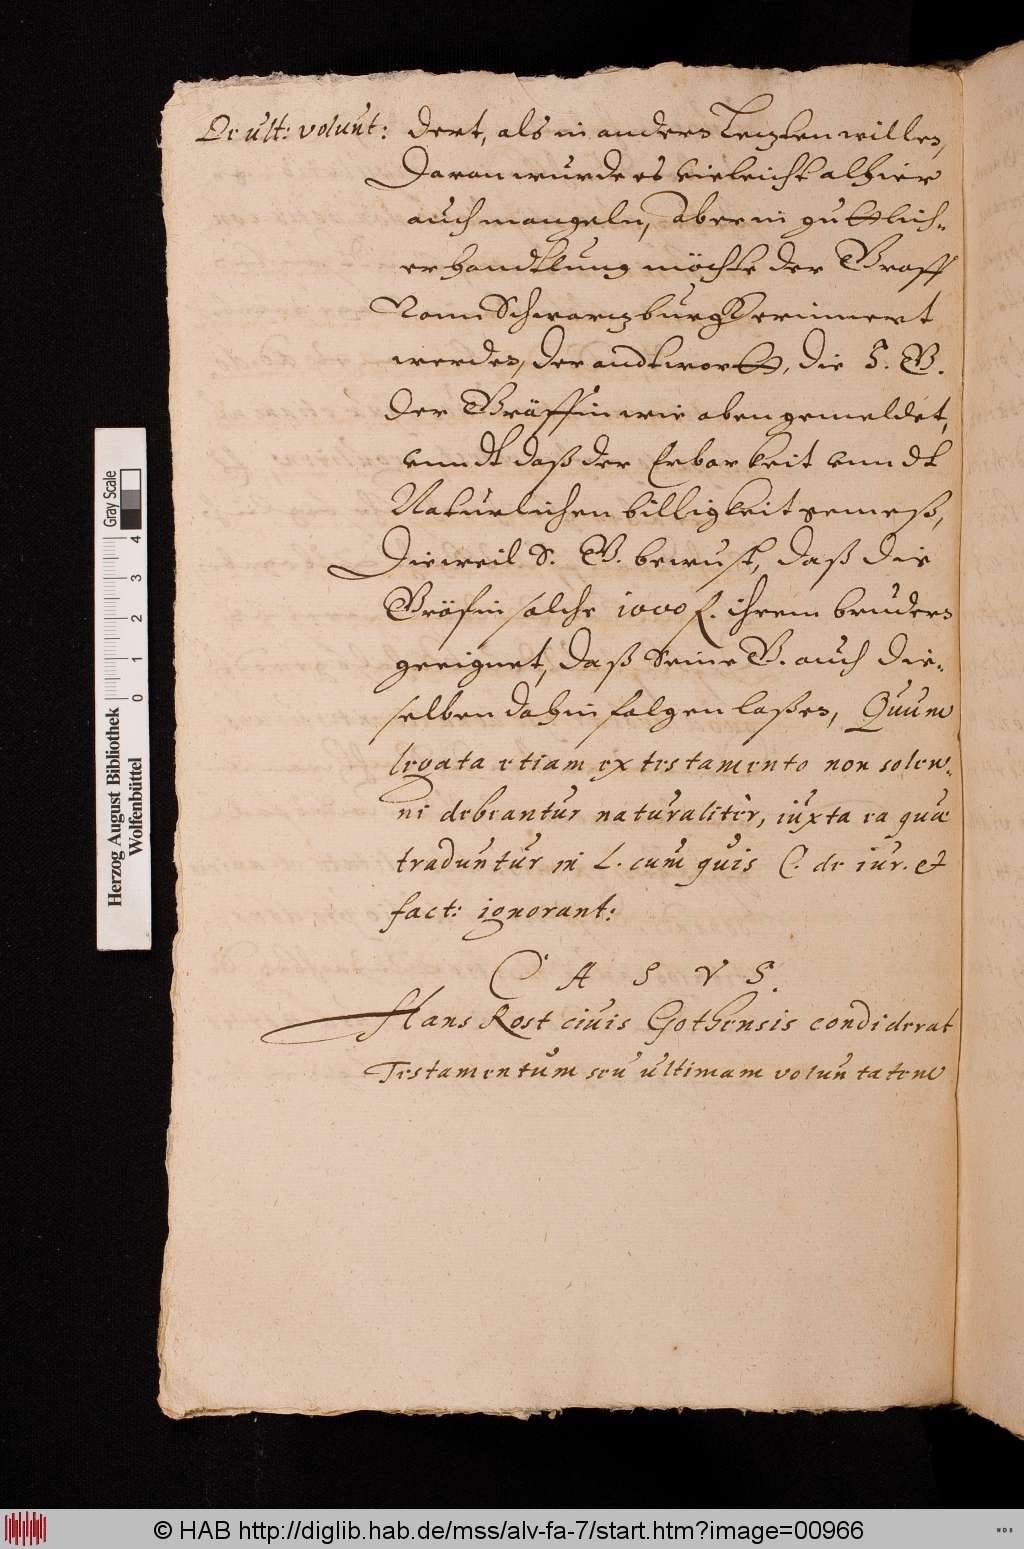 De ult: volunt:
dert, als in anders Letzten willes,
Daran wurde es vieleicht alhier
auch mangeln, aber in guttlich-
er handtlung möchte der Graff
Vonn Schwarzburgk erinnert
werdes, der andtwortt, die S. G.
der Gräffin wie oben gemeldet,
vnndt daß der Erbarkeit vnndt
Naturlichen billigkeit gemeß,
Dieweil S. G. bewust, daß die
Gräfin solche 1000 f. ihrem bruders
geeignet, daß Seine G. auch die-
selben dahin folgen laßes, Quum
legata etiam ex testamento non solen-
ni debeantur naturalitèr, iuxta ea quæ
traduntur in L. cum quis C. de iur. et
fact: ignorant:
C A S V S.
Hans Rost ciuis Gothensis condiderat
Testamentum seu ultimam voluntatem
Herzog August Bibliothek
Wolfenbüttel
0 1 2 3 4
Gray Scale
© HAB http://diglib.hab.de/mss/alv-fa-7/start.htm?image=00966